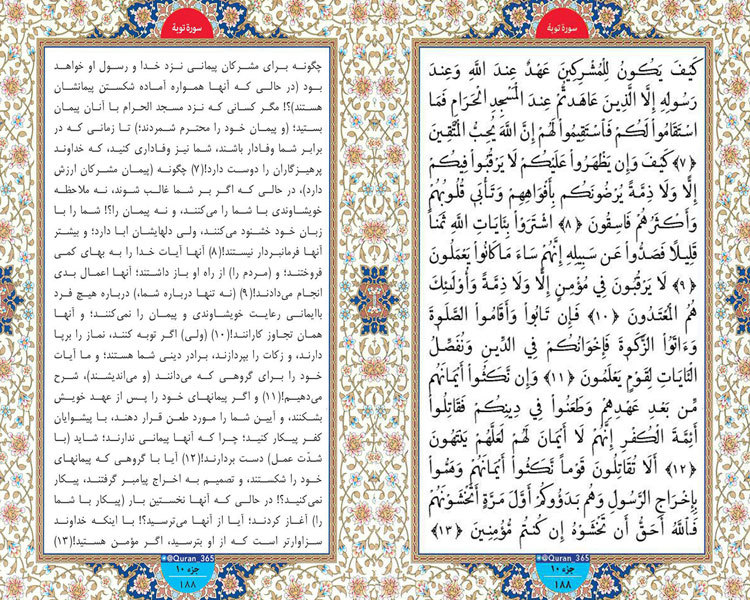 سورهٔ توبهٔ
كَيْفَ يَكُونُ لِلْمُشْرِكِينَ عَهْدٌ عِندَ اللَّهِ وَعِندَ
رَسُولِهِ إِلَّا الَّذِينَ عَاهَدتُّمْ عِندَ الْمَسْجِدِ الْحَرَامِ فَمَا
اسْتَقَامُوا لَكُمْ فَاسْتَقِيمُوا لَهُمْ إِنَّ اللَّهَ يُحِبُّ الْمُتَّقِينَ
﴿۷﴾ كَيْفَ وَإِن يَظْهَرُوا عَلَيْكُمْ لَا يَرْقُبُوا فِيكُمْ
إِلًّا وَلَا ذِمَّةً يُرْضُونَكُم بِأَفْوَاهِهِمْ وَتَأْبَى قُلُوبُهُمْ
وَأَكْثَرُهُمْ فَاسِقُونَ ﴿۸﴾ اشْتَرَوْا بِآيَاتِ اللَّهِ ثَمَناً
قَلِيلًا فَصَدُّوا عَن سَبِيلِهِ إِنَّهُمْ سَاءَ مَا كَانُوا يَعْمَلُونَ
﴿۹﴾ لَا يَرْقُبُونَ فِي مُؤْمِنٍ إِلًّا وَلَا ذِمَّةً وَأُولَئِكَ
هُمُ الْمُعْتَدُونَ ﴿۱۰﴾ فَإِن تَابُوا وَأَقَامُوا الصَّلَوةَ
وَءَاتَوُا الزَّكَوةَ فَإِخْوَانُكُمْ فِي الدِّينِ وَنُفَصِّلُ
الْآيَاتِ لِقَوْمٍ يَعْلَمُونَ ﴿۱۱﴾ وَإِن نَّكَثُوا أَيْمَانَهُم
مِّن بَعْدِ عَهْدِهِمْ وَطَعَنُوا فِي دِينِكُمْ فَقَاتِلُوا
أَئِمَّةَ الْكُفْرِ إِنَّهُمْ لَا أَيْمَانَ لَهُمْ لَعَلَّهُمْ يَنتَهُونَ
﴿۱۲﴾ أَلَا تُقَاتِلُونَ قَوْماً نَّكَثُوا أَيْمَانَهُمْ وَهَمُّوا
بِإِخْرَاجِ الرَّسُولِ وَهُم بَدَءُوكُمْ أَوَّلَ مَرَّةٍ أَتَخْشَوْنَهُمْ
فَاللَّهُ أَحَقُّ أَن تَخْشَوْهُ إِن كُنتُم مُّؤْمِنِينَ ﴿۱۳﴾
@Quran_365
جزء ۱۰
۱۸۸
سورهٔ توبهٔ
چگونه برای مشرکان پیمانی نزد خدا و رسول او خواهد
بود (در حالی که آنها همواره آماده شکستن پیمانشان
هستند)؟! مگر کسانی که نزد مسجد الحرام با آنان پیمان
بستید؛ (و پیمان خود را محترم شمردند؛) تا زمانی که در
برابر شما وفادار باشند، شما نیز وفاداری کنید، که خداوند
پرهیزگاران را دوست دارد!(۷) چگونه (پیمان مشرکان ارزش
دارد)، در حالی که اگر بر شما غالب شوند، نه ملاحظه
خویشاوندی با شما را می‌کنند، و نه پیمان را؟! شما را با
زبان خود خشنود می‌کنند، ولی دلهایشان ابا دارد؛ و بیشتر
آنها فرمانبردار نیستند!(۸) آنها آیات خدا را به بهای کمی
فروختند؛ و (مردم را) از راه او باز داشتند؛ آنها اعمال بدی
انجام می‌دادند!(۹) (نه تنها درباره شما،) درباره هیچ فرد
باایمانی رعایت خویشاوندی و پیمان را نمی‌کنند؛ و آنها
همان تجاوز کارانند!(۱۰) (ولی) اگر توبه کنند، نماز را برپا
دارند، و زکات را بپردازند، برادر دینی شما هستند؛ و ما آیات
خود را برای گروهی که می‌دانند (و می‌اندیشند)، شرح
می‌دهیم!(۱۱) و اگر پیمانهای خود را پس از عهد خویش
بشکنند، و آیین شما را مورد طعن قرار دهند، با پیشوایان
کفر پیکار کنید؛ چرا که آنها پیمانی ندارند؛ شاید (با
شدّت عمل) دست بردارند!(۱۲) آیا با گروهی که پیمانهای
خود را شکستند، و تصمیم به اخراج پیامبر گرفتند، پیکار
نمی‌کنید؟! در حالی که آنها نخستین بار (پیکار با شما
را) آغاز کردند؛ آیا از آنها می‌ترسید؟! با اینکه خداوند
سزاوارتر است که از او بترسید، اگر مؤمن هستید!(۱۳)
@Quran_365
جزء ۱۰
۱۸۸